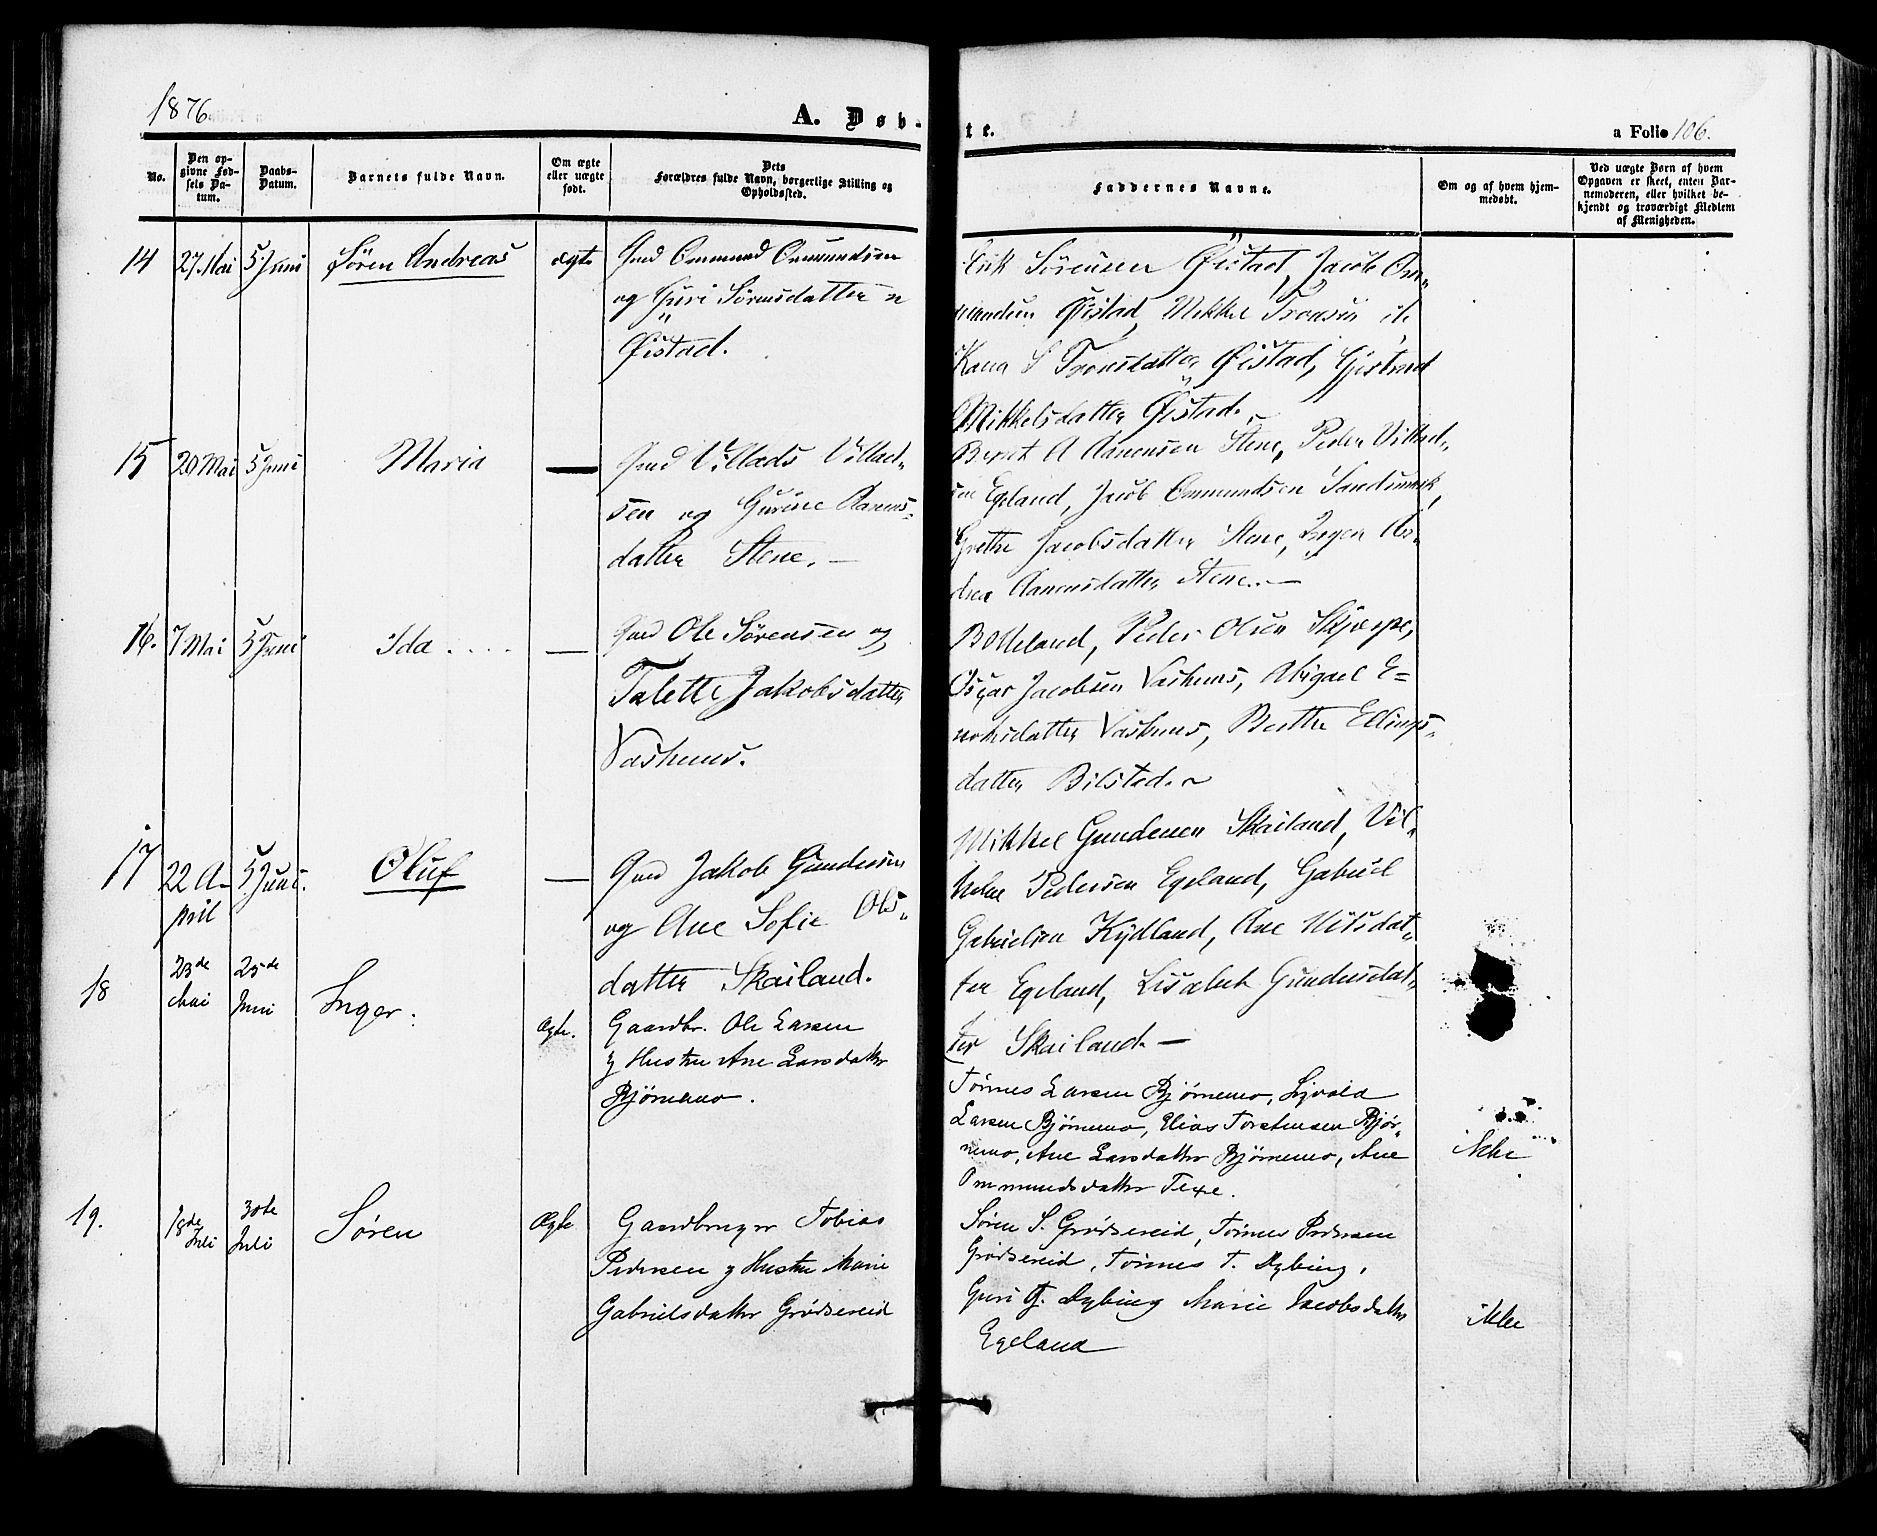 1876
A. Døb-
te.
a Folio 106.
No.
Den op-
givne Fød-
sels Da-
tum.
Daabs-
Datum.
Barnets fulde Navn.
Om ægte
eller uægte
født.
Dets
Forældres fulde Navn, borgerlige Stilling og
Opholdssted.
Faddernes Navne.
Om og af hvem hjem-
medøbt.
Ved uægte Børn af hvem
Opgaven er skeet, enten Bar-
nemoderen, eller hvilket be-
kjendt og troværdigt Medlem
af Menigheden.
14 27 Mai 5 Juni Søren Andreas ægte Gmd Ommund Ommundsen
og Guri Sørensdatter
Øistad.
Erik Sørensen Øistad, Jacob Om-
mundsen Øistad, Mikkel Tronsen
S Tronsdatter Øistad,
Mikkelsdatter Øistad.
15 20 Mai 5 Juni Maria — Gmd Villads Villad-
sen og Gurine Aanens-
datter Stene. —
Bernt A Aanensen Stene, Peder Villad-
sen Egeland, Jacob Ommundsen
Grethe Jacobsdatter Stene, Inger
Aanensdatter Stene. —
16. 7 Mai 5 Juni Ida .... — Gmd Ole Sørensen og
Talette Jakobsdatter
Vashuus.
Botteland, Peder Olsen Skjerpe,
Oscar Jacobsen Vashuus, Abigael E-
noksdatter Vashuus, Berthe Ellings-
datter Bilstad. ~
17 22 A- 5 Juni. Oluf — Gmd Jakob Gundersen
pril
og Ane Sofie Ols-
datter Skailand.
Mikkel Gundersen Skailand, Vil-
helm Pedersen Egeland, Gabriel
Gabrielsen Kydland, Ane Nilsdat-
ter Egeland, Lisabet Gundersdat-
ter Skailand. —
18 23de Mai 25de Juni Inger. Ægte. Gaardbr. Ole Larsen
og Hustru Ane Larsdatter
Bjørnemo.
Tønnes Larsen Bjørnemo, Sigvald
Larsen Bjørnemo, Elias Torstensen Bjør-
nemo, Ane Larsdatter Bjørnemo, Ane
Ommundsdatter Texe.
ikke
19. 18de Juli 30te Juli Søren Ægte Gaardbruger Tobias
Pedersen og Hustru Marie
Gabrielsdatter Grødsereid
Søren S. Grødsereid, Tønnes Pedersen
Grødsereid, Tønnes T. Dybing,
Guri G. Dybing Marie Jacobsdatter
Egeland
ikke